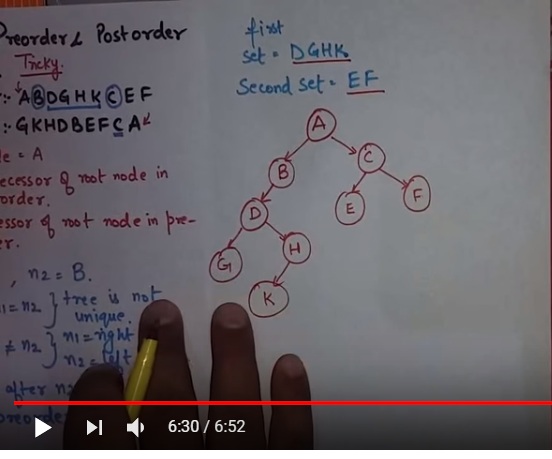 Preorder & Postorder
Tricky.
:- ABDGHKCEF
:- GKHDBEFCA
= A
of root node in
order.
of root node in pre-
, n2 = B.
n1 = n2 } tree is not
unique.
≠ n2 } n1 = right
n2 = left
after n2
first
set = DGHK
Second set = EF
A
B
C
D
E
F
G
H
K
6:30 / 6:52